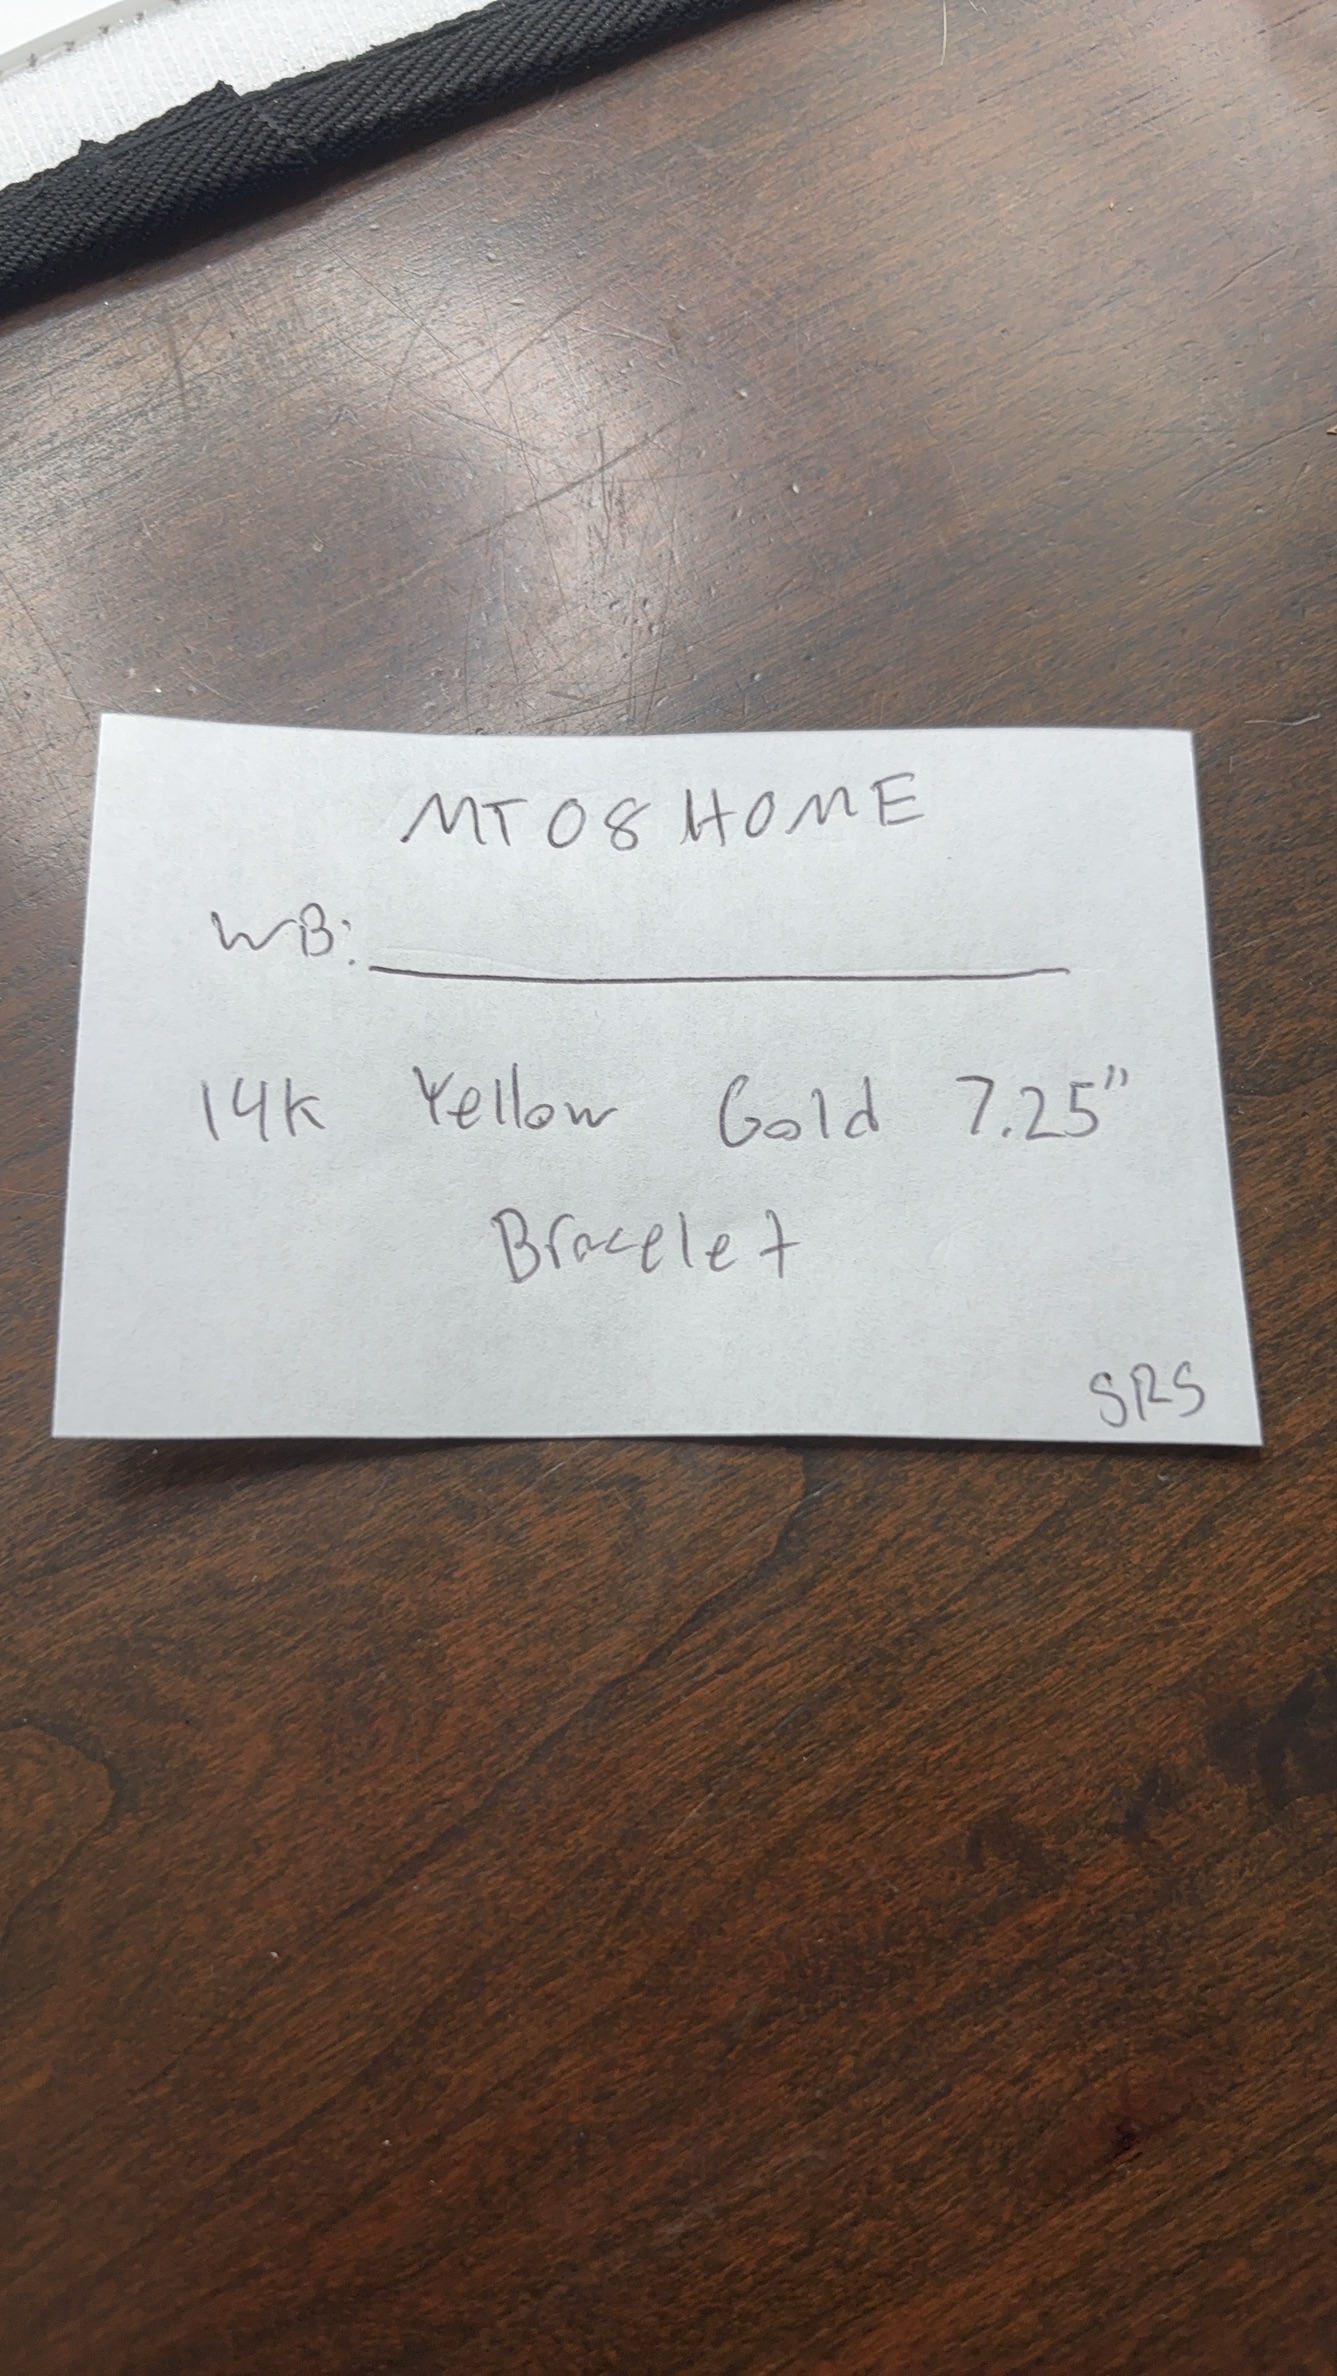 MT08HOME
WB: ____________________
14k Yellow Gold 7.25"
Bracelet
SRS